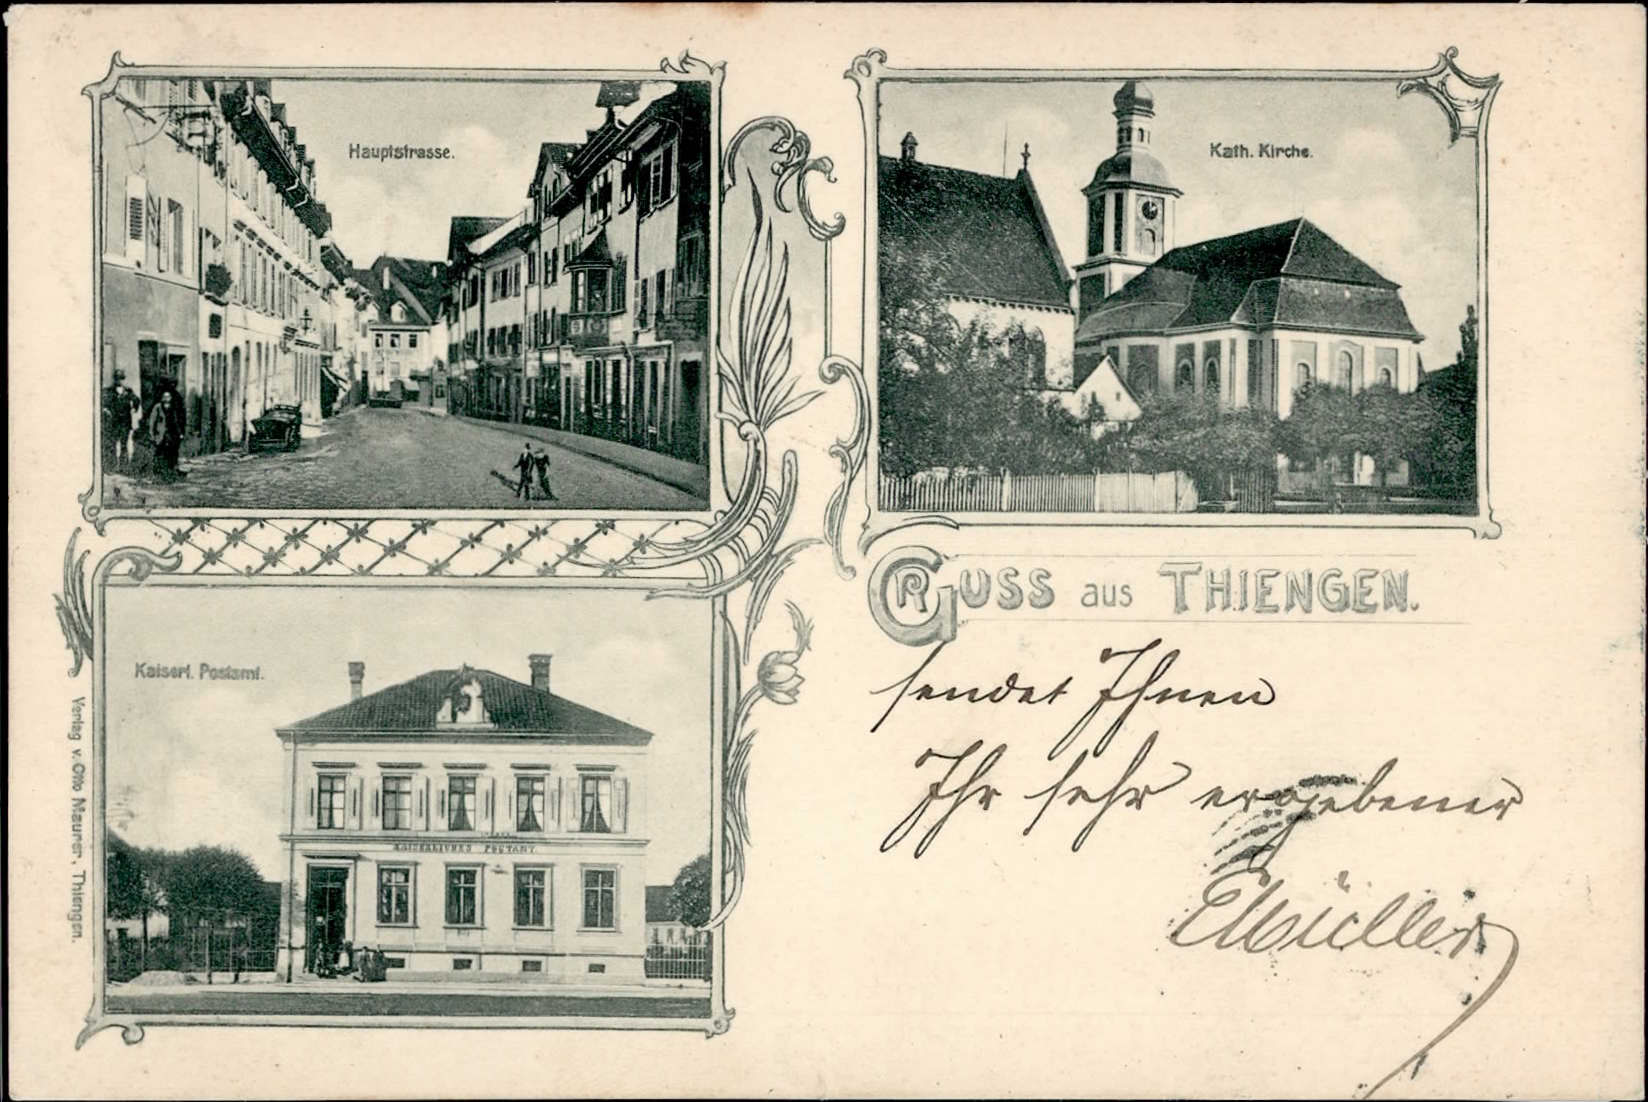 Hauptstrasse.
Kath. Kirche.
Kaiserl. Postamt.
KAISERLICHES POSTAMT.
Verlag v. Otto Maurer, Thiengen.
GRUSS aus THIENGEN.
sendet Ihnen
Ihr sehr ergebener
EMüller